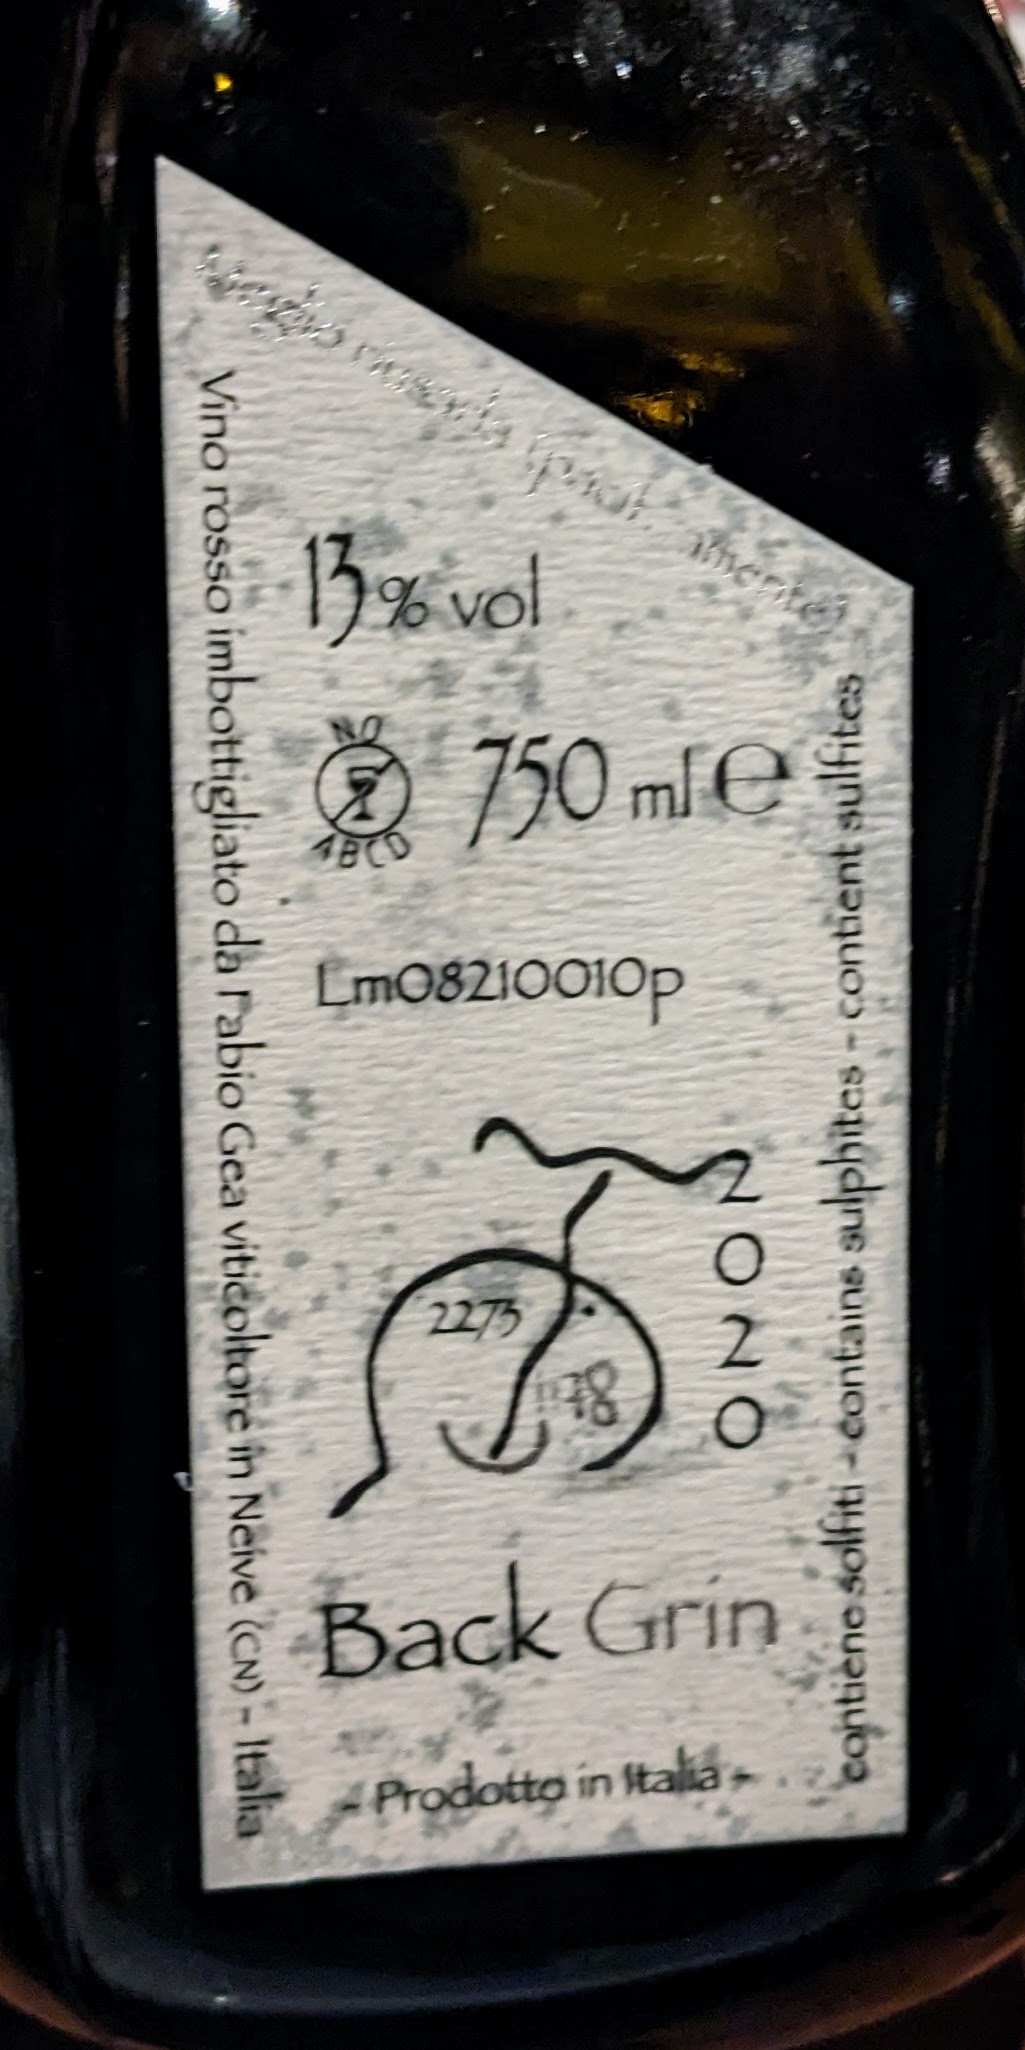 Vino rosso imbottigliato da Fabio Gea viticoltore in Neive (CN) - Italia
13% vol
NO
ABCD
750 ml e
Lm08210010p
2020
2273
78
Back Grin
- Prodotto in Italia -
contiene solfiti - contains sulphites - contient sulfites